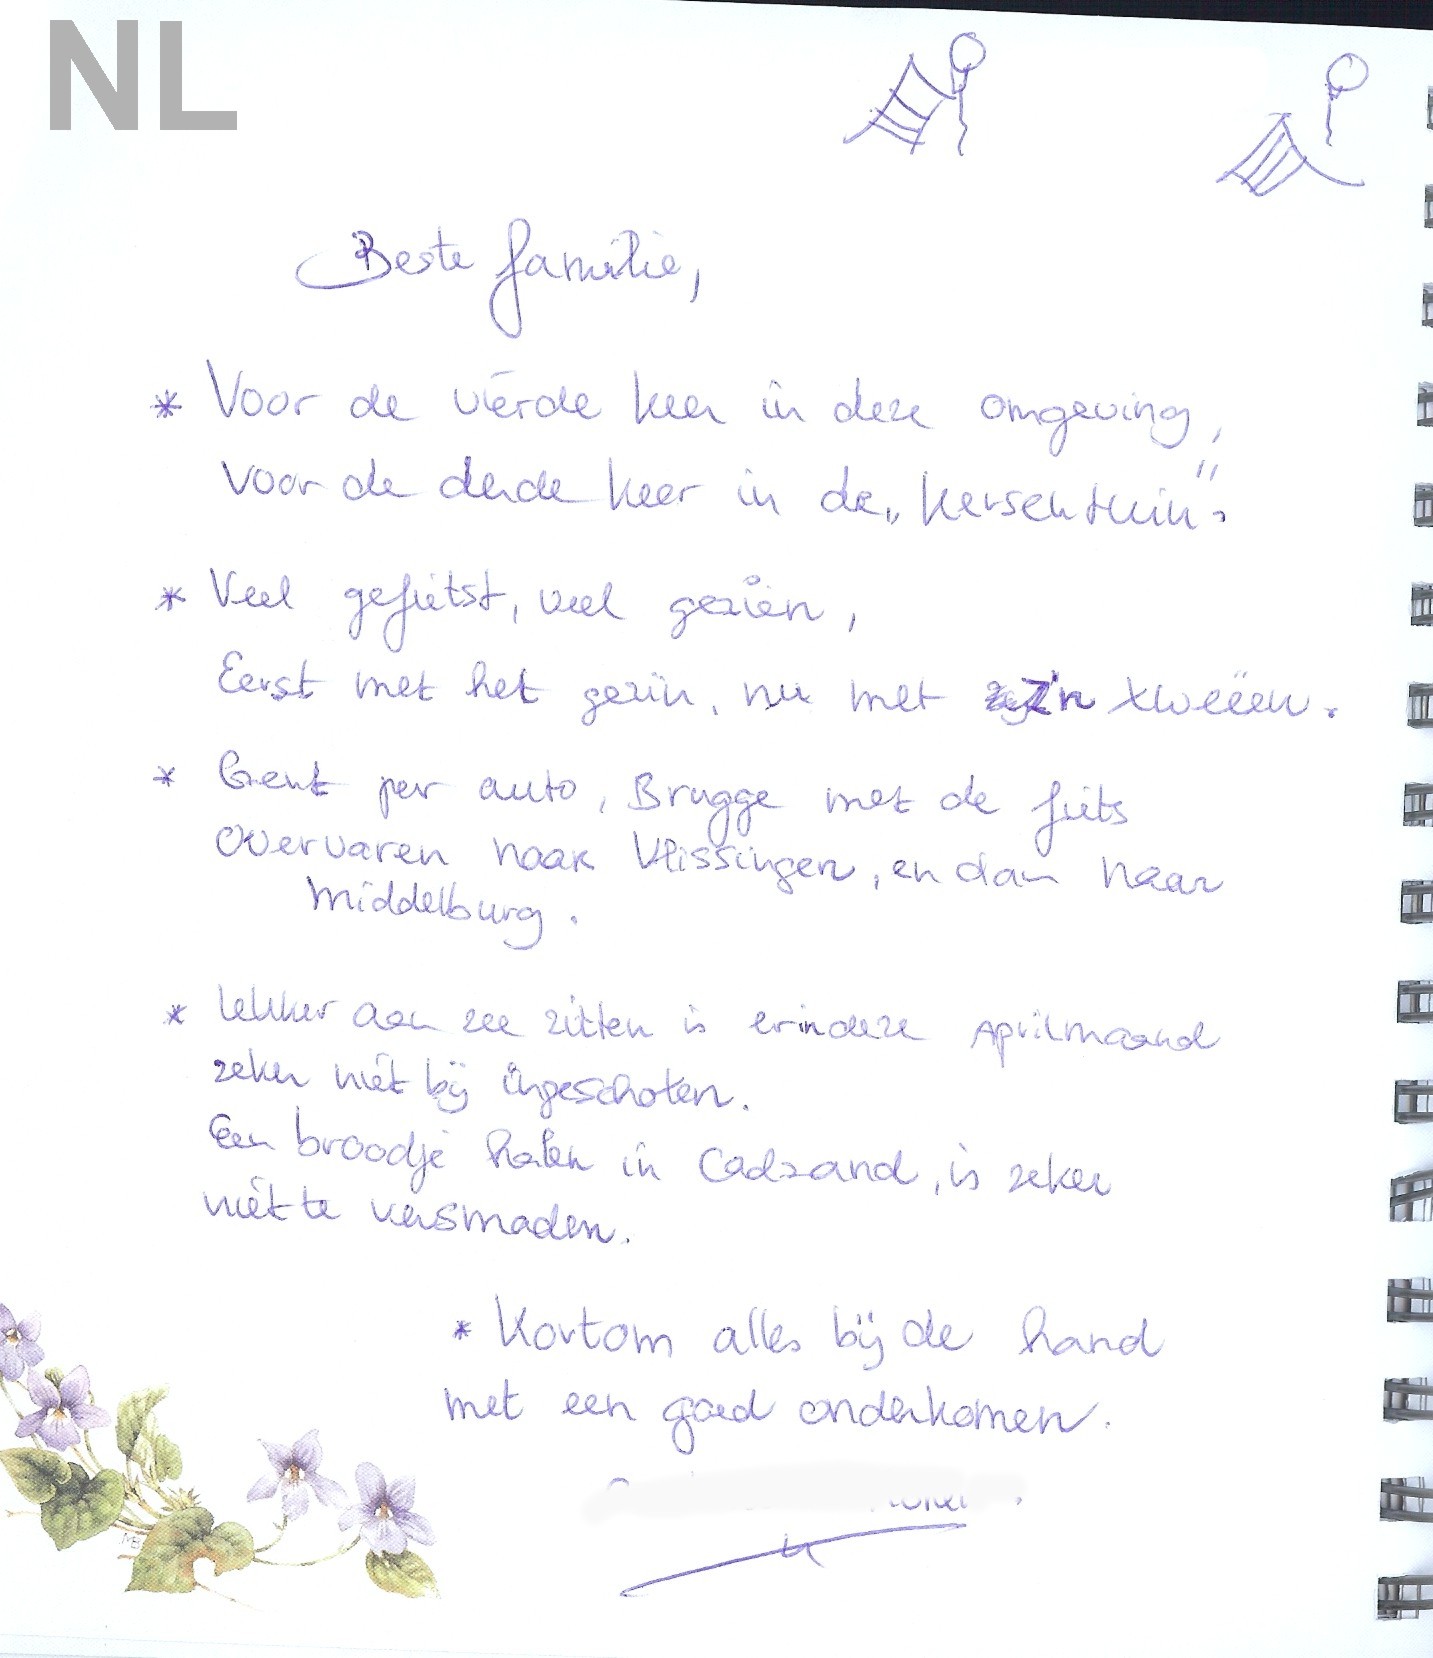 NL
Beste familie,
* Voor de vierde keer in deze omgeving,
voor de derde keer in de „Kersentuin".
* Veel gefietst, veel gezien,
Eerst met het gezin, nu met z'n tweeën.
* Gent per auto, Brugge met de fiets
Overvaren naar Vlissingen, en dan naar
Middelburg.
* lekker aan zee zitten is er in deze Aprilmaand
zeker niet bij ingeschoten.
Een broodje halen in Cadzand, is zeker
niet te versmaden.
* Kortom alles bij de hand
met een goed onderkomen.